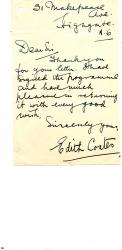 31 Makepeace
Ave.
Highgate.
N.6
Dear Sir
Thank you
for your letter. I have
signed the programme
and have much
pleasure in returning
it with every good
wish.
Sincerely yours,
Edith Coates